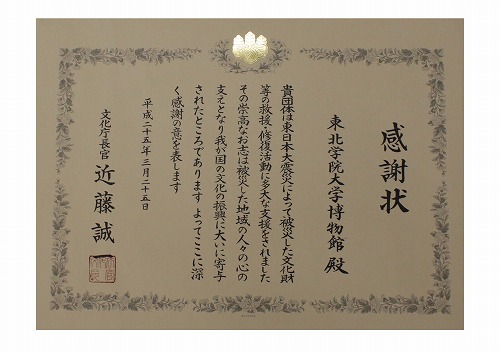 感謝状
東北学院大学博物館殿
貴団体は東日本大震災によって被災した文化財
等の救援・修復活動に多大な支援をされました
その崇高なお志は被災した地域の人々の心の
支えとなり我が国の文化の振興に大いに寄与
されたところであります よってここに深
く感謝の意を表します
平成二十五年三月二十五日
文化庁長官 近藤誠